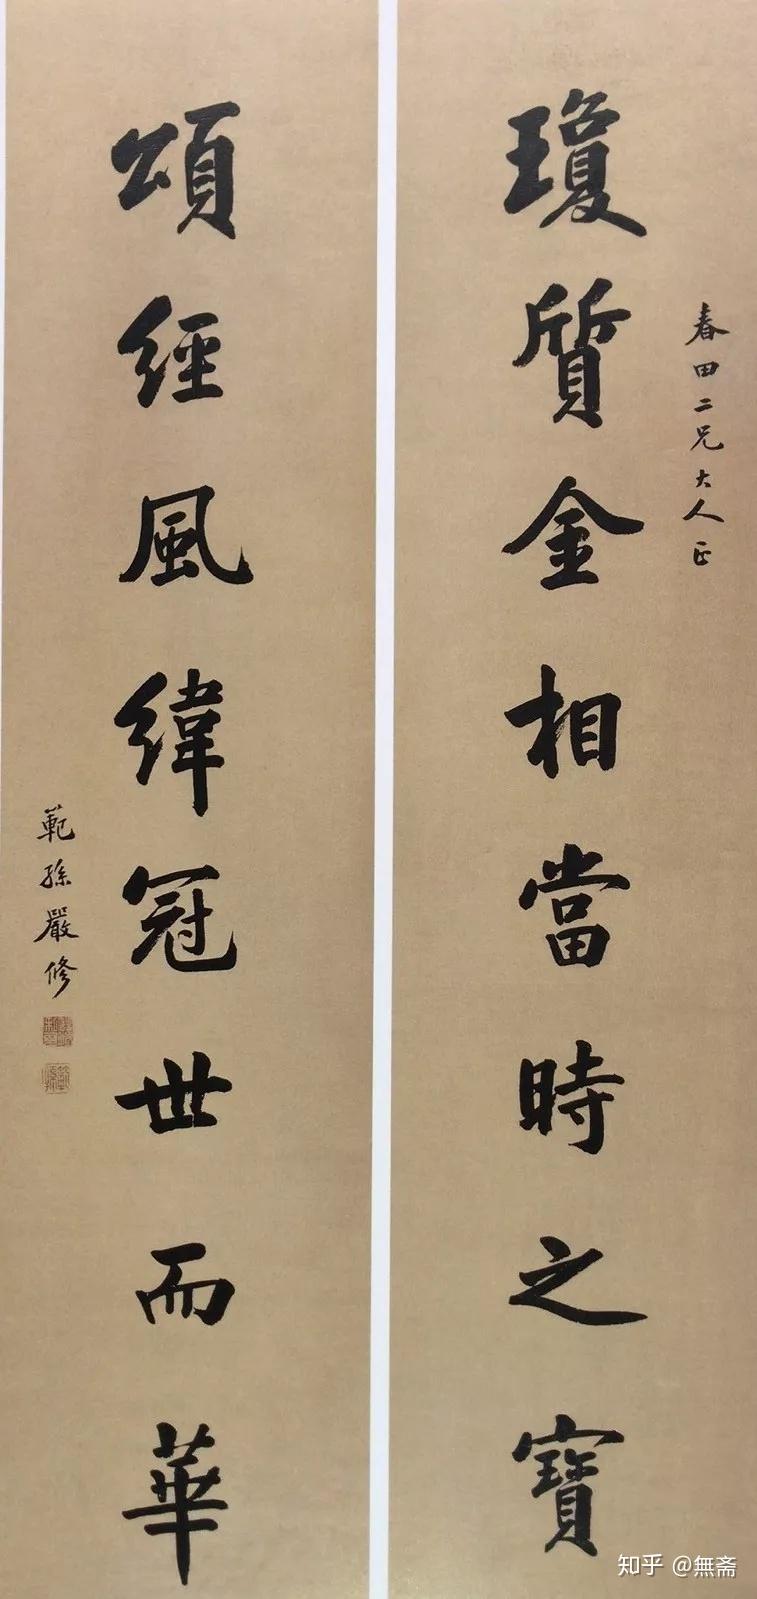 春田二兄大人正
瓊質金相當時之寶
頌經風緯冠世而華
範孫嚴修
知乎 @無斋